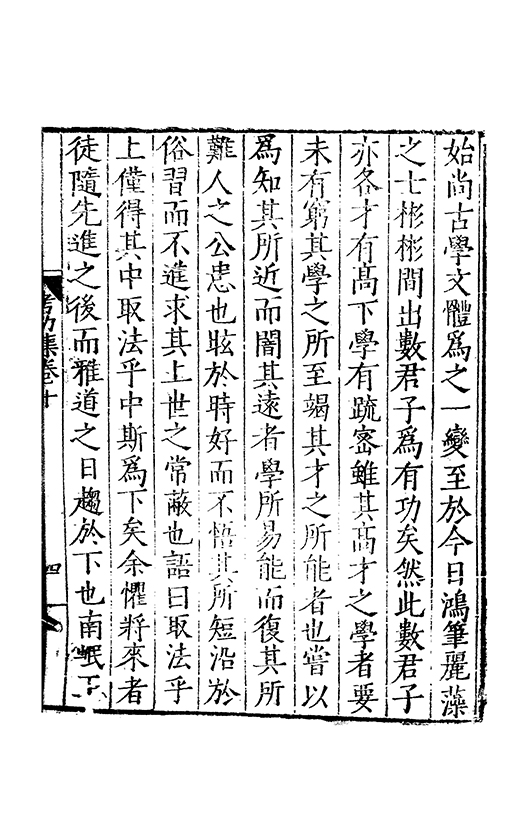 始尚古學文體爲之一變至於今日鴻筆麗藻
之士彬彬間出數君子爲有功矣然此數君子
亦各才有髙下學有䟽宻雖其髙才之學者要
未有窮其學之所至竭其才之所能者也嘗以
爲知其所近而闇其遠者學所易能而復其所
難人之公患也眩於時好而不悟其所短沿於
俗習而不進求其上世之常蔽也語曰取法乎
上僅得其中取法乎中斯爲下矣余懼將來者
徒隨先進之後而雅道之日趨於下也南岷
考功集卷十
四